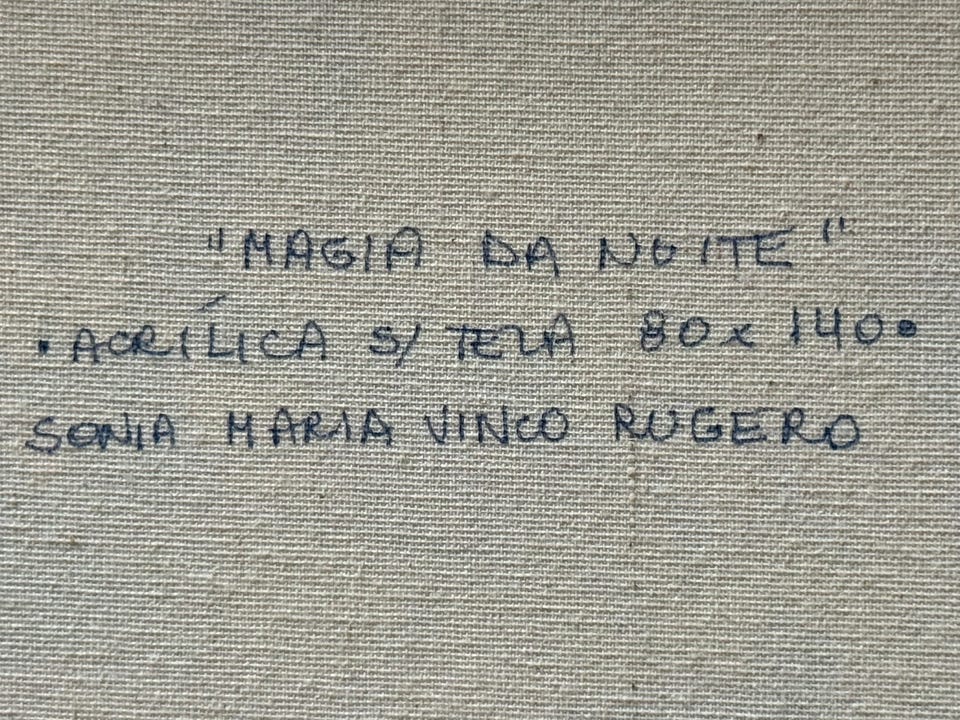 "MAGIA DA NOITE"
• ACRÍLICA S/ TELA 80 x 140 •
SONIA MARIA VINCO RUGERO